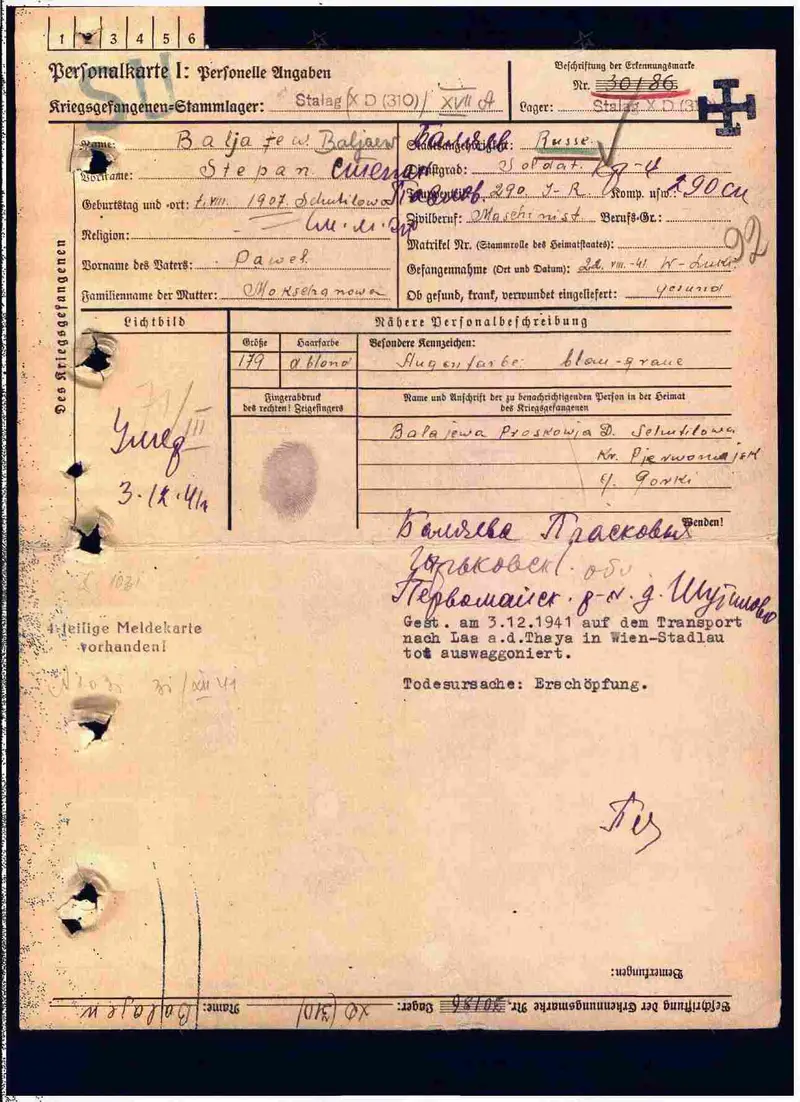 1 2 3 4 5 6
SU
Personalkarte I: Personelle Angaben
Kriegsgefangenen=Stammlager: Stalag X D (310) / XVII A
Beschriftung der Erkennungsmarke
Nr. 30186
Lager: Stalag X D (31
Des Kriegsgefangenen
Name: Baljajew Baljaew Баляев
Vorname: Stepan Степан
Geburtstag und =ort: 1907. Schutilowa
Religion:
Vorname des Vaters: Pawel
Familienname der Mutter: Mokschanowa
Russe
Dienstgrad: Soldat
290. J-R. Komp. usw.: 290 сп
Zivilberuf: Maschinist Berufs-Gr.:
Matrikel Nr. (Stammrolle des Heimatstaates):
92
Gefangennahme (Ort und Datum): 22. VIII.-41. W-Luki
Ob gesund, krank, verwundet eingeliefert: gesund
Lichtbild
Nähere Personalbeschreibung
Größe Haarfarbe Besondere Kennzeichen:
179 d blond Augenfarbe: blau-graue
Fingerabdruck
des rechten! Zeigefingers
Name und Anschrift der zu benachrichtigenden Person in der Heimat
des Kriegsgefangenen
Balajewa Proskowja D. Schutilowa
Kr. Pjerwomajsk
G. Gorki
Wenden!
71/III
Умер
3.12.41г
Баляева Прасковья
Горьковск. обл
Первомайск. р-н. д. Шутилово
Gest. am 3.12.1941 auf dem Transport
nach Laa a.d.Thaya in Wien-Stadlau
tot auswaggoniert.
Todesursache: Erschöpfung.
4-teilige Meldekarte
vorhanden!
31/XII 41
Bemerkungen:
Beschriftung der Erkennungsmarke Nr. 30186 Lager: XD (310) Name: Balajew